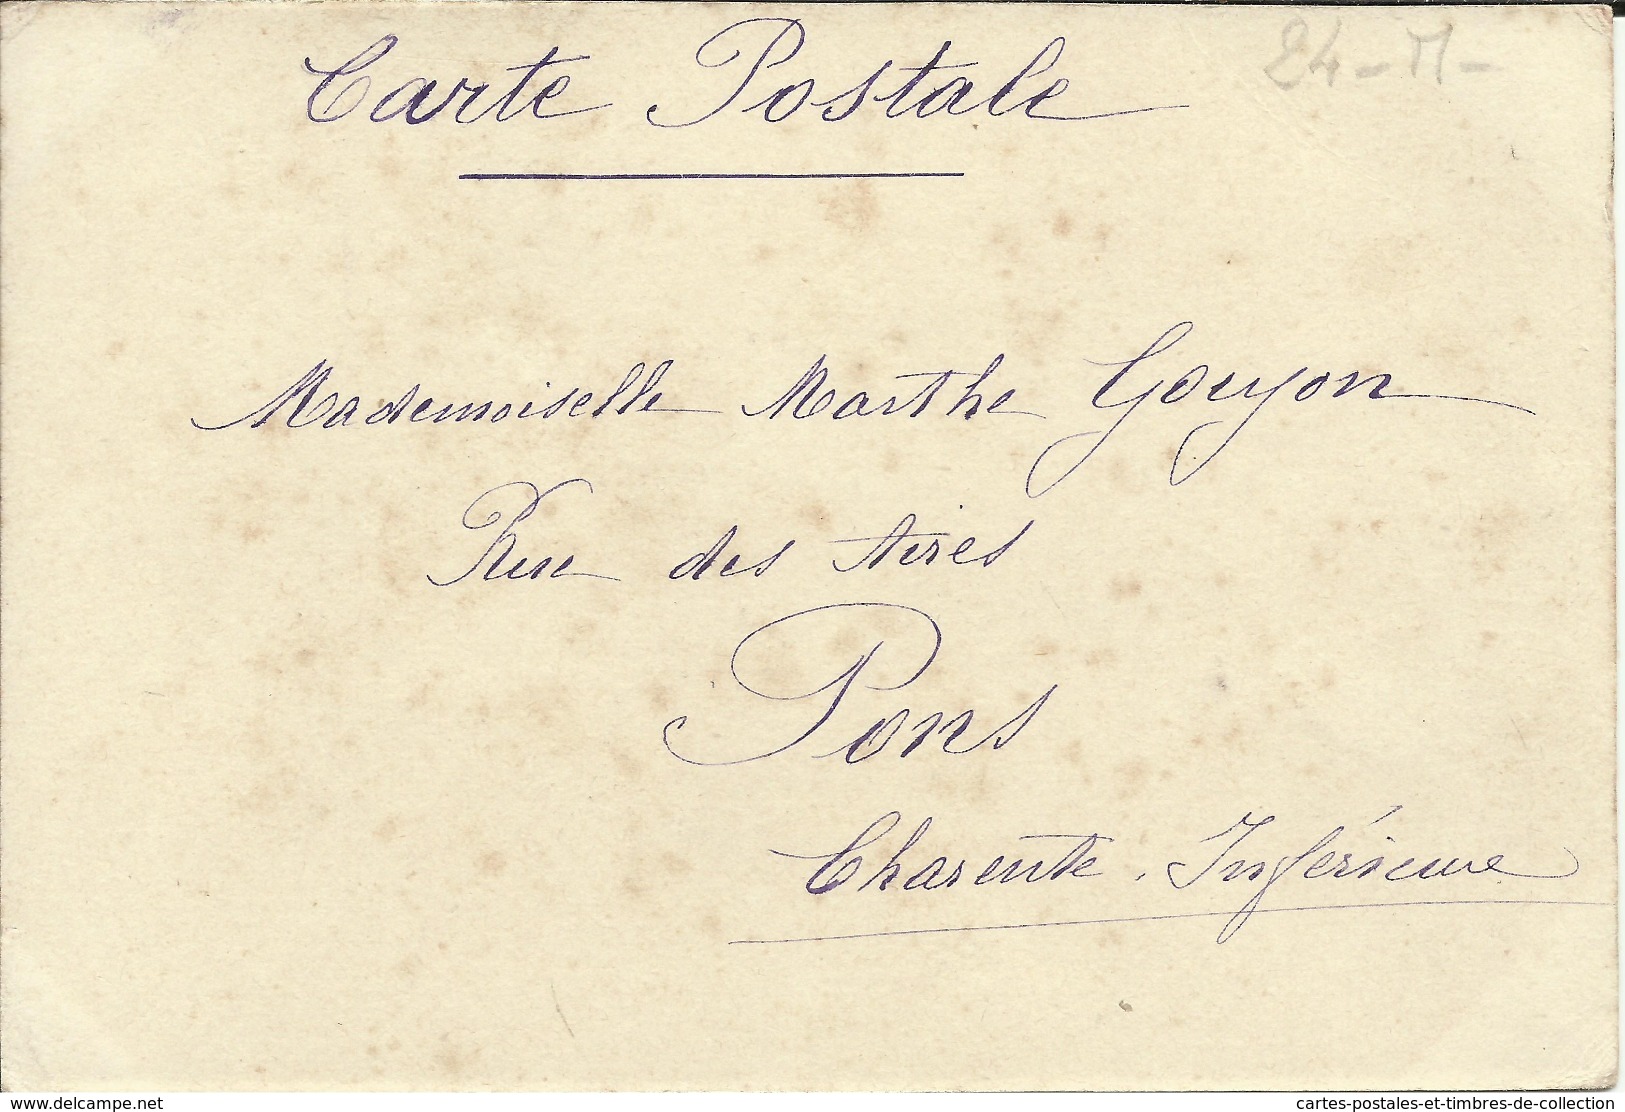 Carte Postale
24 - M -
Mademoiselle Marthe Goujon
Rue des Aires
Pons
Charente. Inférieure
www.delcampe.net
cartes-postales-et-timbres-de-collection